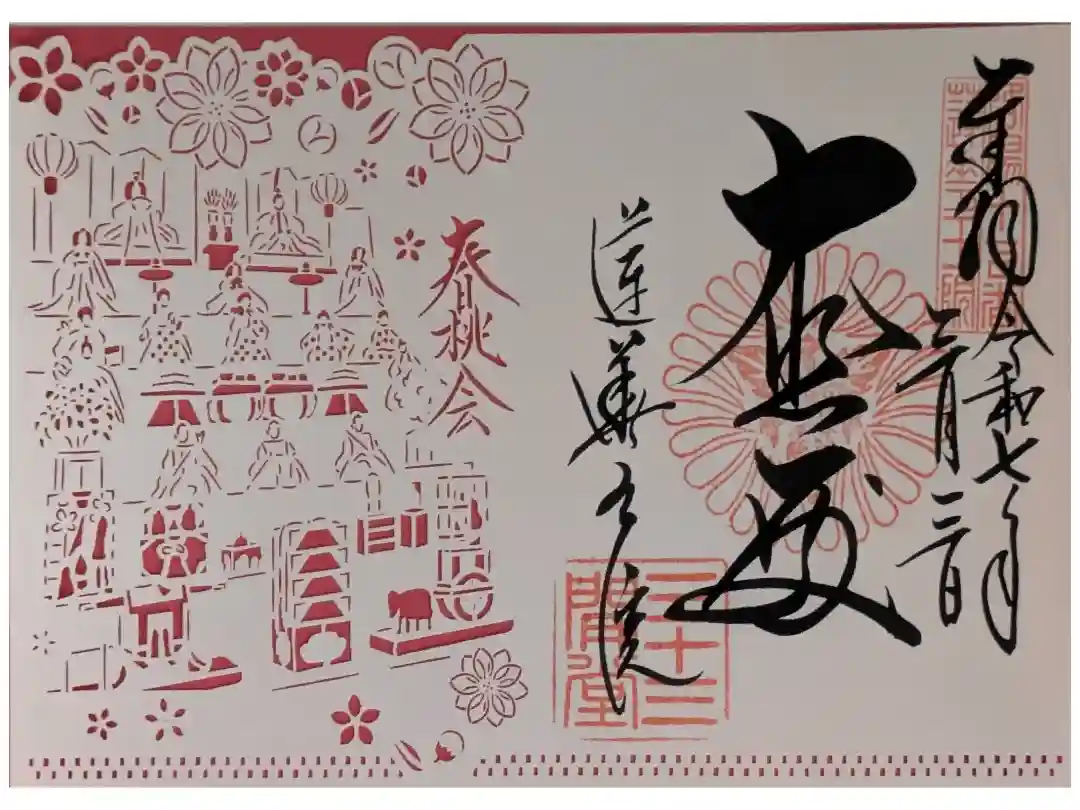 奉拝 令和七年
三月三日
大悲殿
蓮華王院
三十三
間堂
春桃会